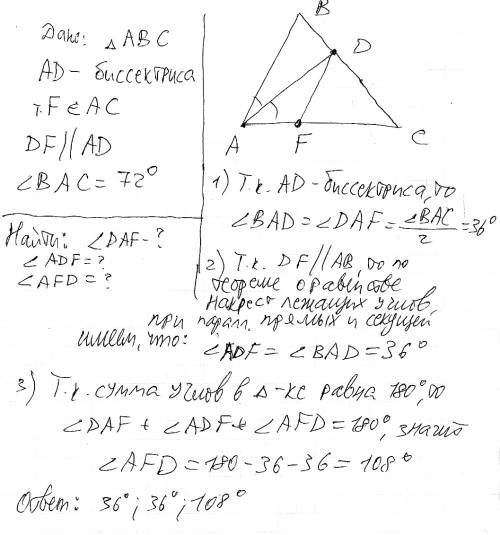 Дано: △ABC
AD - биссектриса
т. F ∈ AC
DF // AD
∠BAC = 72°
Найти: ∠DAF - ?
∠ADF = ?
∠AFD = ?
B
D
A
F
C
1) Т.к. AD - биссектриса, то
∠BAD = ∠DAF = ∠BAC/2 = 36°
2) Т.к. DF // AB, то по
теореме о равенстве
накрест лежащих углов,
при парал. прямых и секущей
имеем, что:
∠ADF = ∠BAD = 36°
3) Т.к. сумма углов в △-ке равна 180°, то
∠DAF + ∠ADF + ∠AFD = 180°, значит
∠AFD = 180 - 36 - 36 = 108°
Ответ: 36°; 36°; 108°